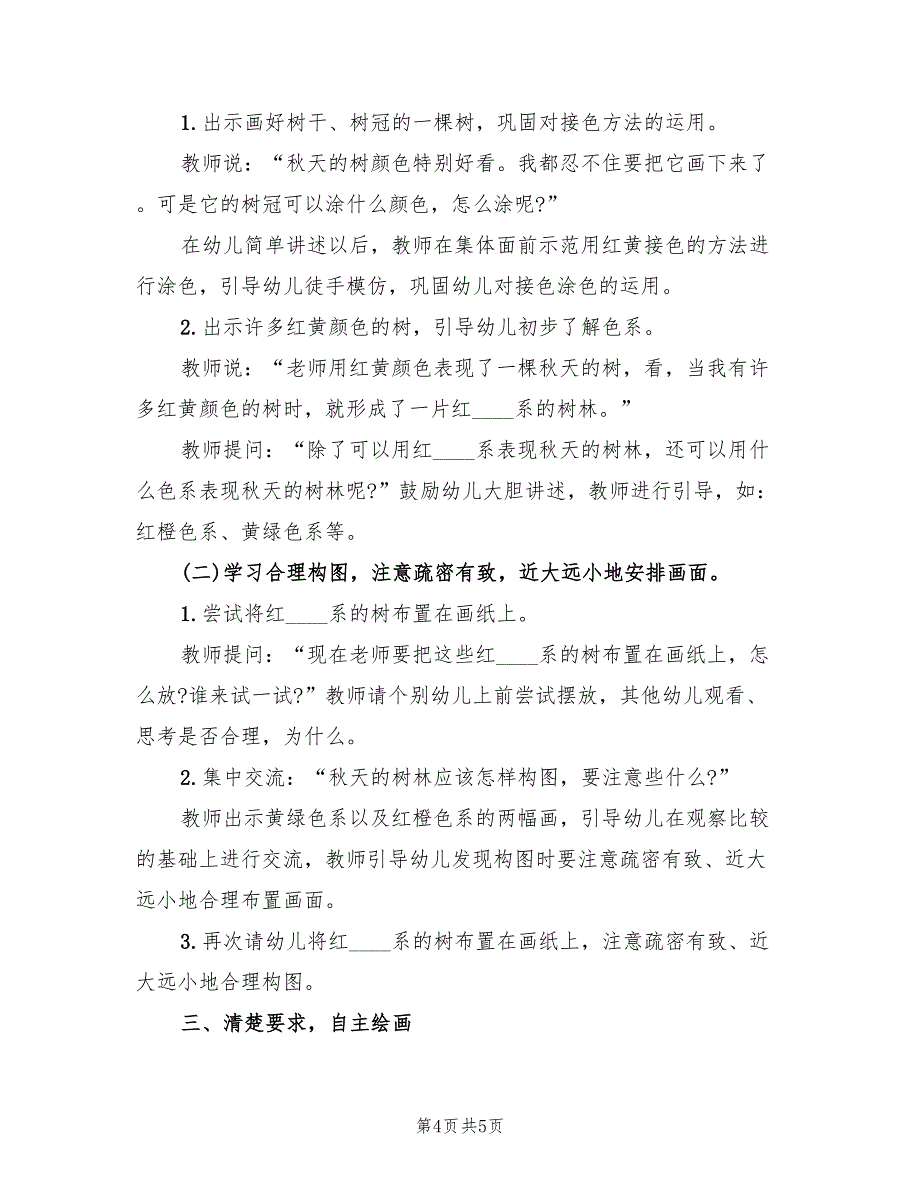 1. 出示画好树干、树冠的一棵树，巩固对接色方法的运用。
教师说：“秋天的树颜色特别好看。我都忍不住要把它画下来了
。可是它的树冠可以涂什么颜色，怎么涂呢?”
在幼儿简单讲述以后，教师在集体面前示范用红黄接色的方法进
行涂色，引导幼儿徒手模仿，巩固幼儿对接色涂色的运用。
2. 出示许多红黄颜色的树，引导幼儿初步了解色系。
教师说：“老师用红黄颜色表现了一棵秋天的树，看，当我有许
多红黄颜色的树时，就形成了一片红____系的树林。”
教师提问：“除了可以用红____系表现秋天的树林，还可以用什
么色系表现秋天的树林呢?”鼓励幼儿大胆讲述，教师进行引导，如：
红橙色系、黄绿色系等。
(二)学习合理构图，注意疏密有致，近大远小地安排画面。
1. 尝试将红____系的树布置在画纸上。
教师提问：“现在老师要把这些红____系的树布置在画纸上，怎
么放?谁来试一试?”教师请个别幼儿上前尝试摆放，其他幼儿观看、
思考是否合理，为什么。
2. 集中交流：“秋天的树林应该怎样构图，要注意些什么?”
教师出示黄绿色系以及红橙色系的两幅画，引导幼儿在观察比较
的基础上进行交流，教师引导幼儿发现构图时要注意疏密有致、近大
远小地合理布置画面。
3. 再次请幼儿将红____系的树布置在画纸上，注意疏密有致、近
大远小地合理构图。
三、清楚要求，自主绘画
第4页共5页